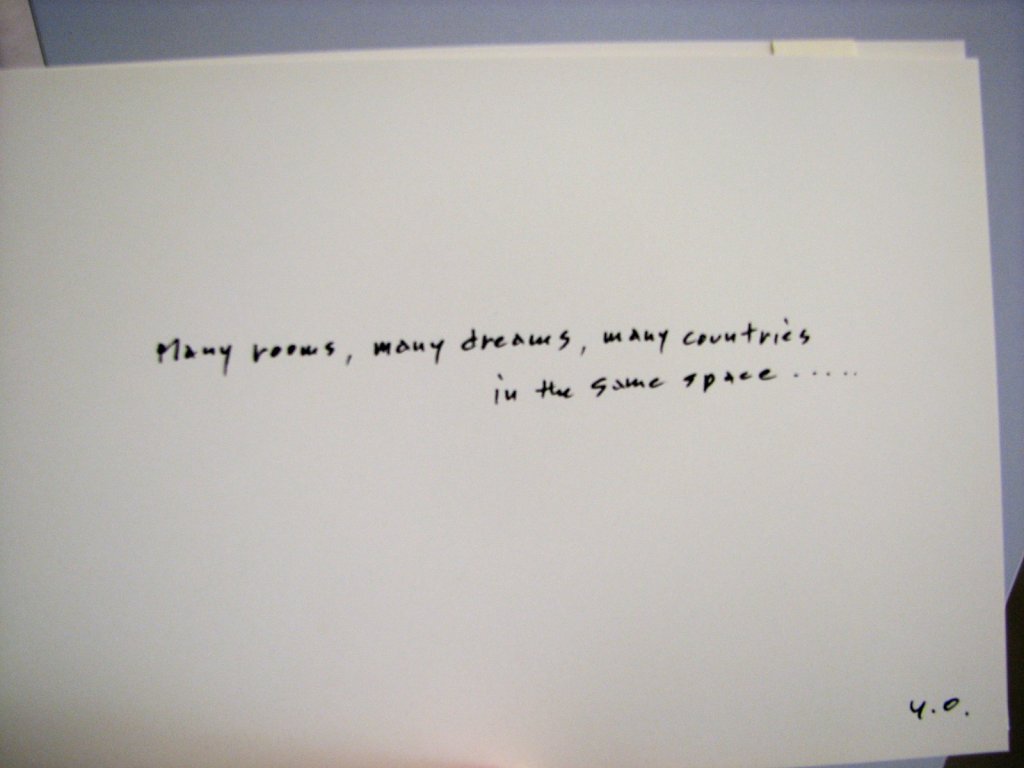 Many rooms, many dreams, many countries
in the same space .....
y.o.